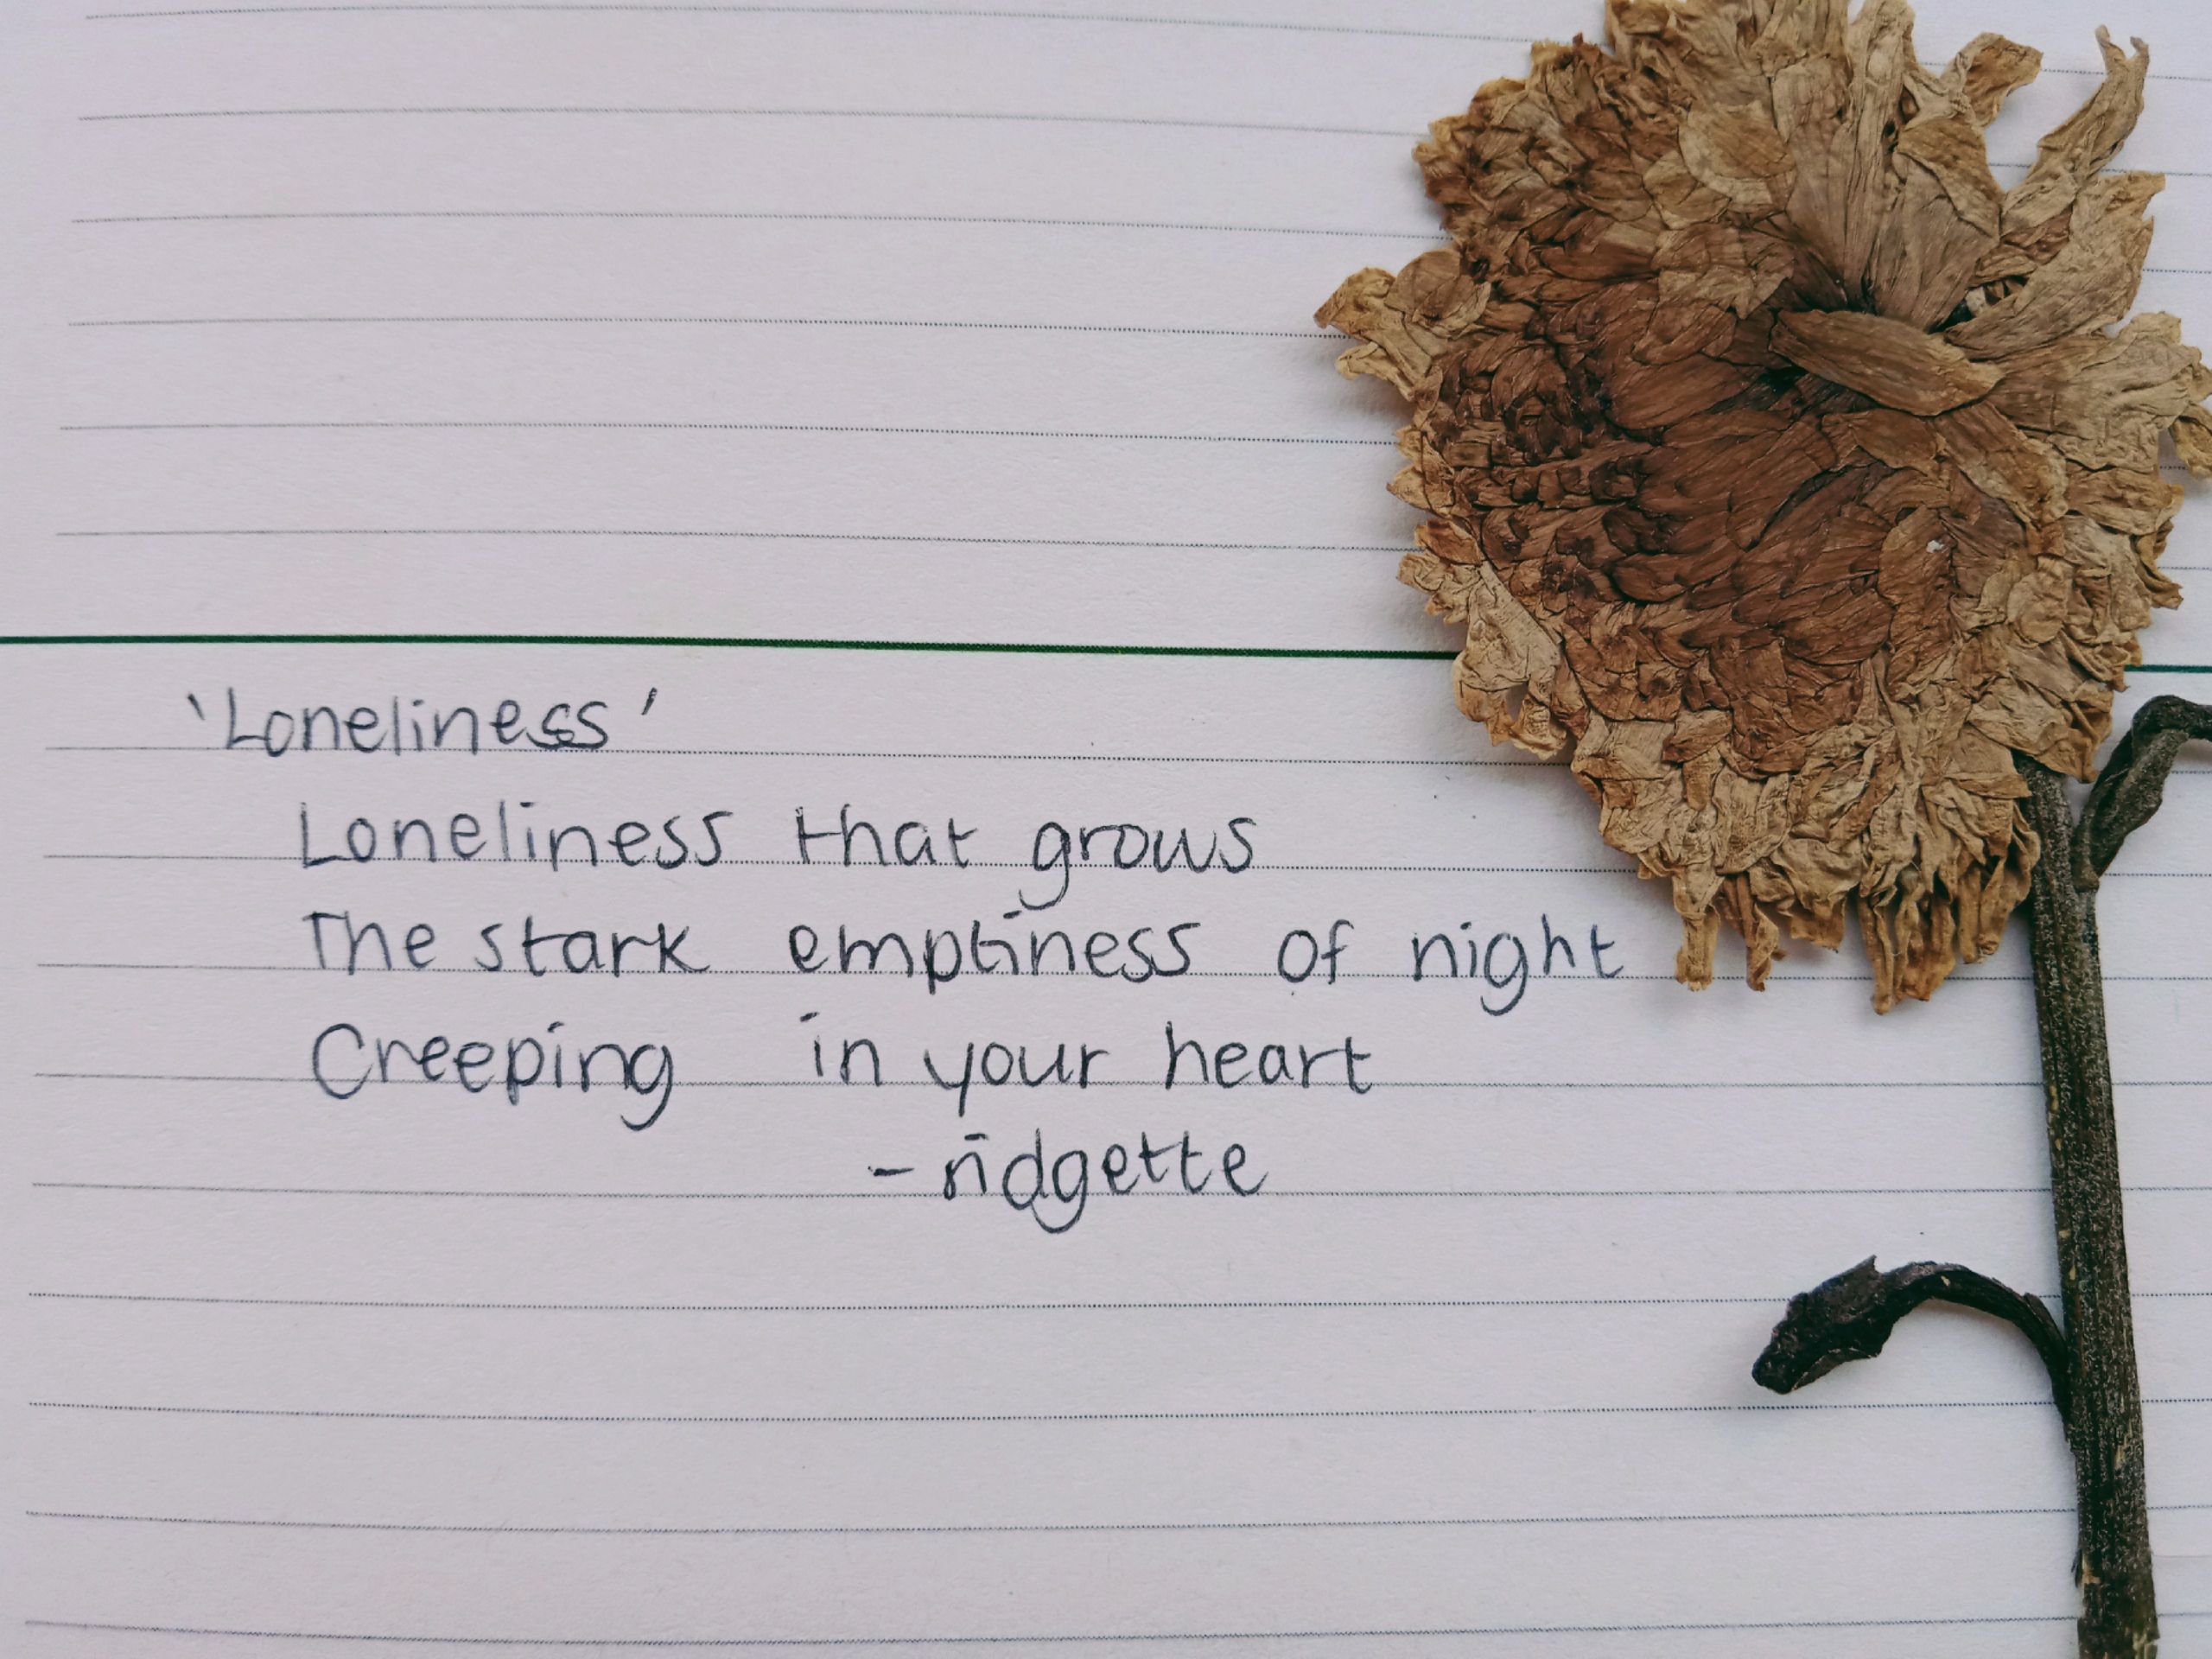 'Loneliness'
Loneliness that grows
The stark emptiness of night
Creeping in your heart
- ridgette